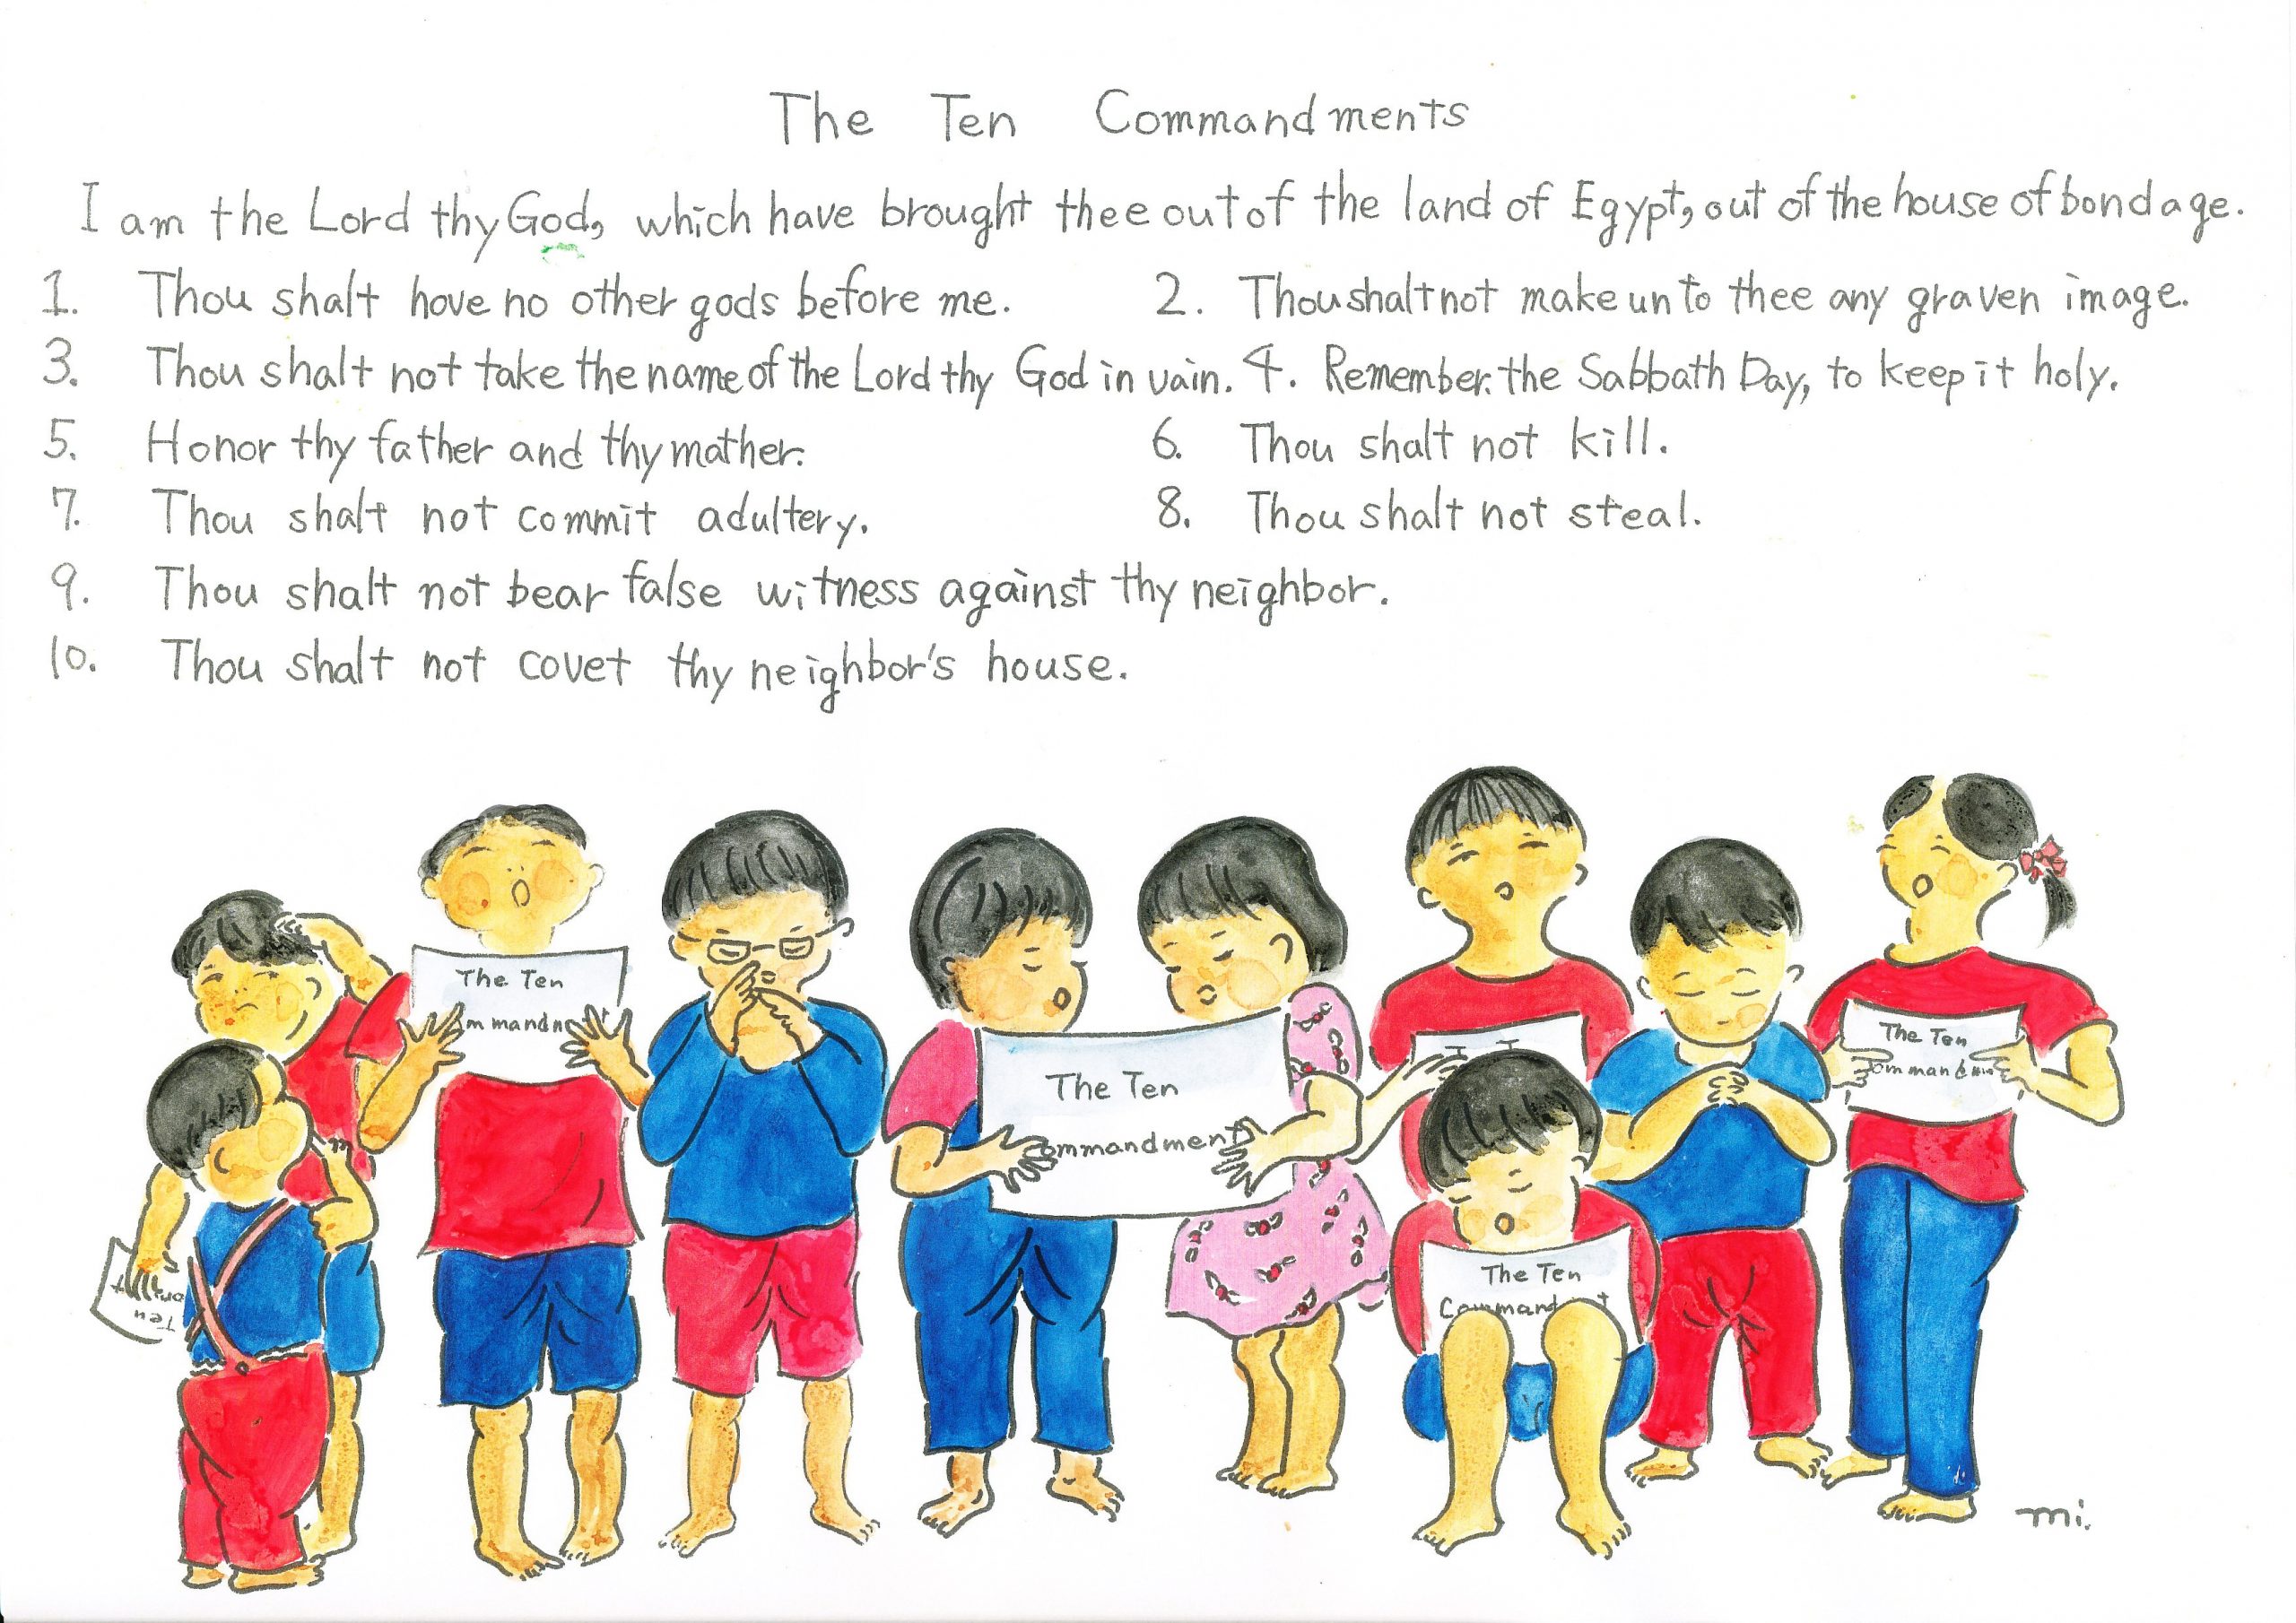 The Ten Commandments
I am the Lord thy God, which have brought thee out of the land of Egypt, out of the house of bondage.
1. Thou shalt hove no other gods before me. 2. Thou shalt not make unto thee any graven image.
3. Thou shalt not take the name of the Lord thy God in vain. 4. Remember the Sabbath Day, to keep it holy.
5. Honor thy father and thy mather. 6. Thou shalt not kill.
7. Thou shalt not commit adultery. 8. Thou shalt not steal.
9. Thou shalt not bear false witness against thy neighbor.
10. Thou shalt not covet thy neighbor's house.
The Ten
The Ten
ommandment
The Ten
The Ten
Ten
mi.